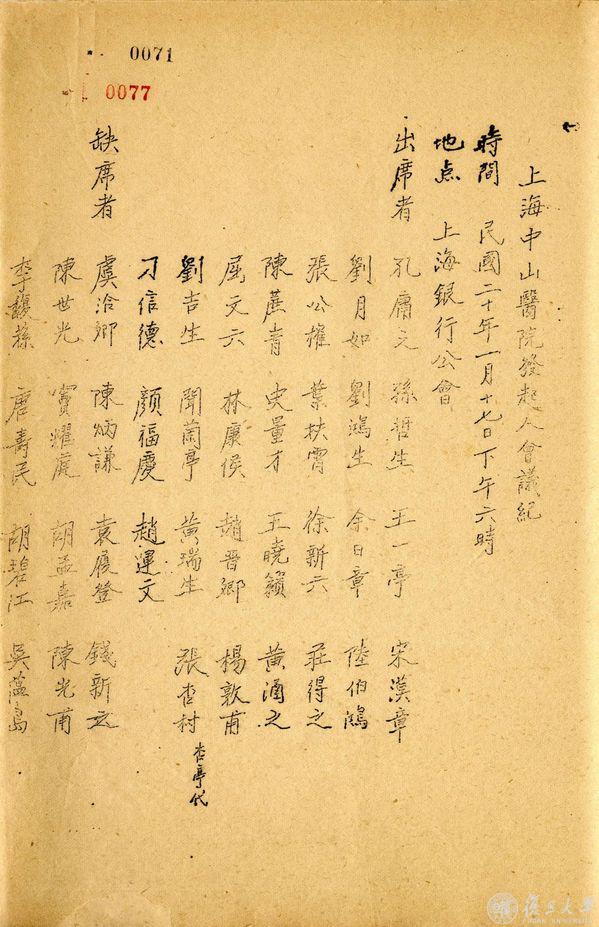 0071
0077
上海中山醫院發起人會議紀
時間 民國二十年一月十七日下午六時
地点 上海銀行公會
出席者 孔庸之 孫哲生 王一亭 宋漢章
劉月如 劉鴻生 余日章 陸伯鴻
張公權 葉扶霄 徐新六 莊得之
陳蔗青 史量才 王曉籟 黃涵之
屈文六 林康侯 趙晋卿 楊敦甫
劉吉生 聞蘭亭 黄瑞生 張杏村 杏亭代
刁信德 顏福慶 趙運文
缺席者 虞洽卿 陳炳謙 袁履登 錢新之
陳世光 竇耀庭 胡孟嘉 陳光甫
李馥蓀 唐壽民 胡碧江 吳蘊斋
復旦大學
FUDAN UNIVERSITY